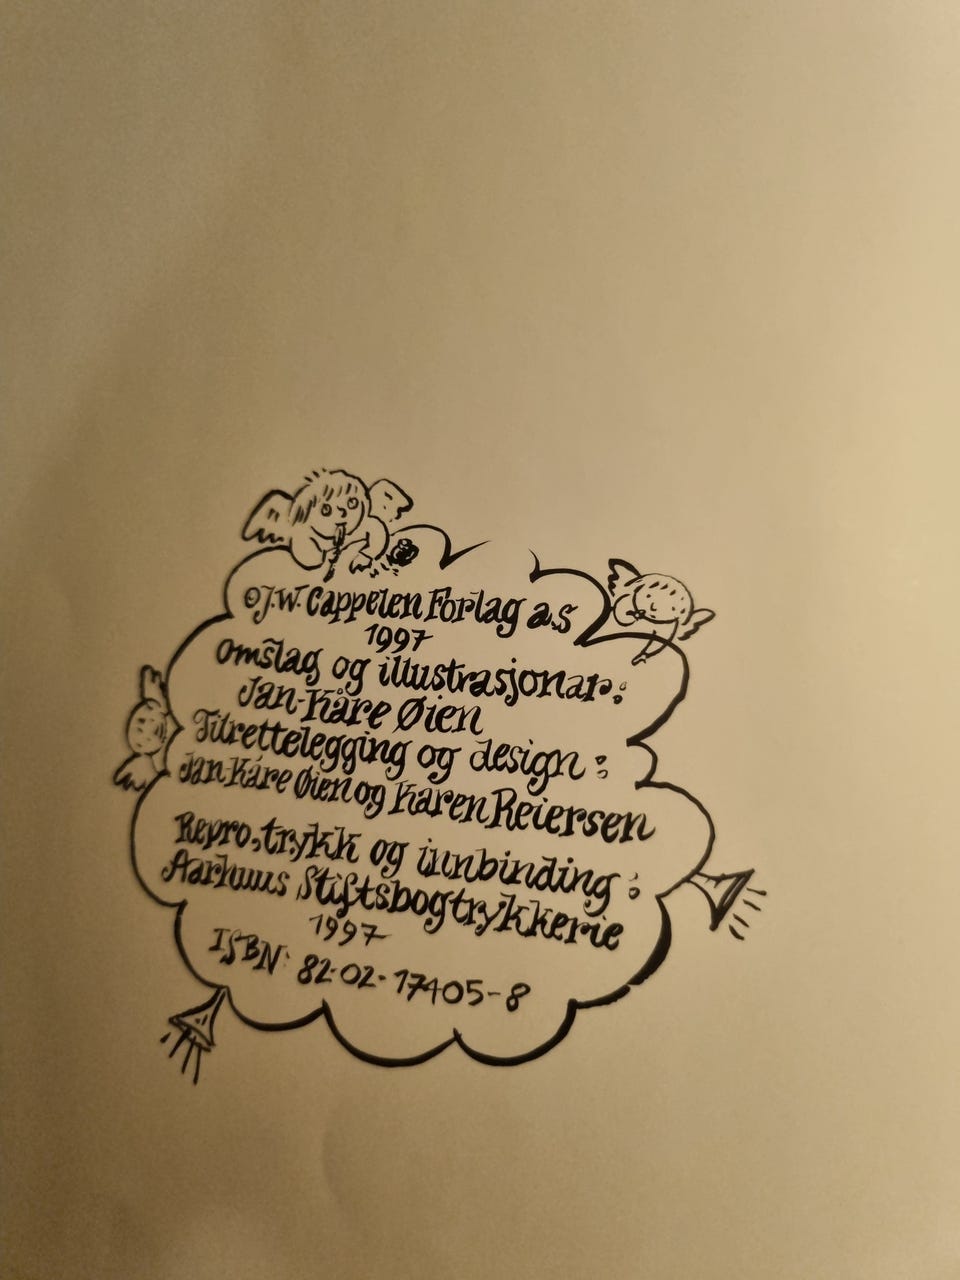 ©J.W. Cappelen Forlag a.s
1997
Omslag og illustrasjonar:
Jan-Kåre Øien
Tilrettelegging og design:
Jan Kåre Øien og Karen Reiersen
Repro, trykk og innbinding:
Aarhuus Stiftsbogtrykkerie
1997
ISBN: 82-02-17405-8